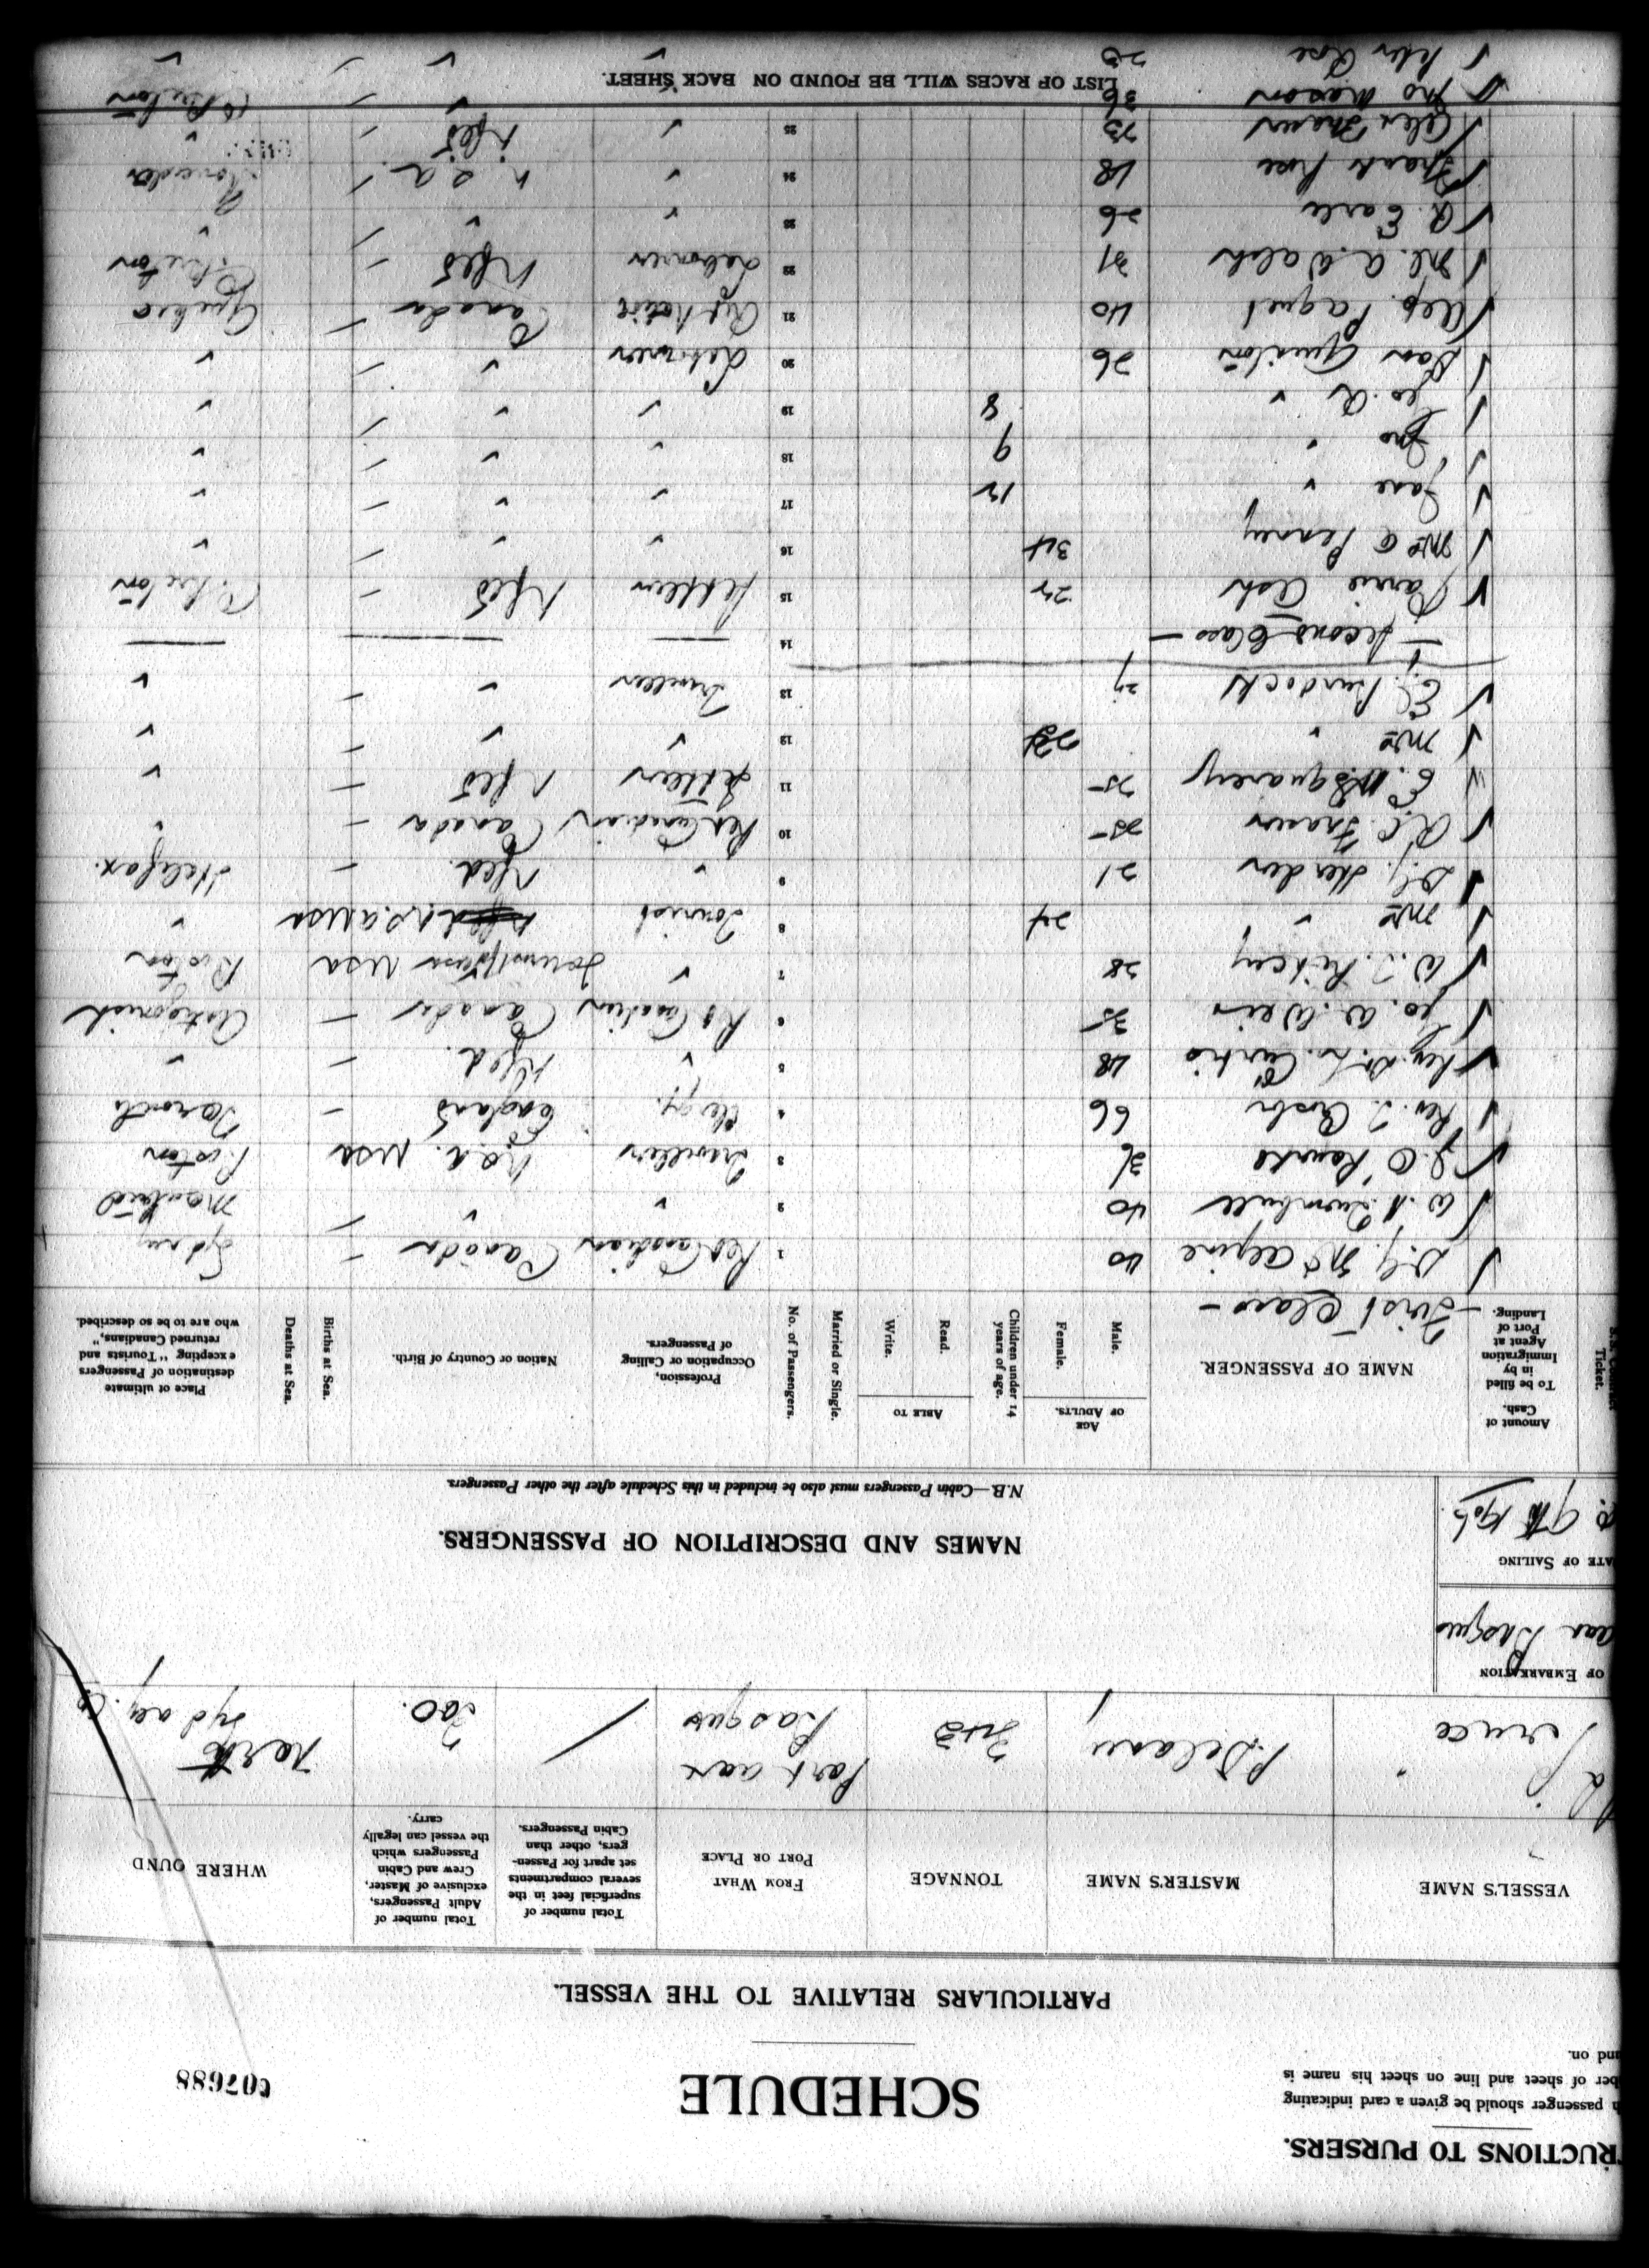 RUCTIONS TO PURSERS.
h passenger should be given a card indicating
ber of sheet and line on sheet his name is
und on.
SCHEDULE
607688
PARTICULARS RELATIVE TO THE VESSEL.
VESSEL'S NAME
MASTER'S NAME
TONNAGE
FROM WHAT PORT OR PLACE
Total number of superficial feet in the several compartments set apart for Passengers, other than Cabin Passengers.
Total number of Adult Passengers, exclusive of Master, Crew and Cabin Passengers which the vessel can legally carry.
WHERE OUND
Bruce P. Delaney Port aux Basques 200. North Sydney. CB
OF EMBARKATION
aux Basques
ATE OF SAILING
NAMES AND DESCRIPTION OF PASSENGERS.
N.B.—Cabin Passengers must also be included in this Schedule after the other Passengers.
Ticket.
Amount of Cash.
To be filled in by Immigration Agent at Port of Landing.
NAME OF PASSENGER.
AGE OF ADULTS.
Male.
Female.
Children under 14 years of age.
ABLE TO
Read.
Write.
Married or Single.
No. of Passengers.
Profession, Occupation or Calling of Passengers.
Nation or Country of Birth.
Births at Sea.
Deaths at Sea.
Place of ultimate destination of Passengers excepting "Tourists and returned Canadians," who are to be so described.
- First Class -
D.J. McAlpine 40 1 Ret Canadian Canada Sydney
W. A. Turnbull 40 2 " " Montreal
J. O'Rourke 36 3 Traveller U.S.A. USA Boston
Rev. T. 66 4 Clergy. England
Rev. Dr. L. Curtis 48 5 " Nfld. "
Geo. W. Weir 35 6 Ret Canadian Canada Antigonish
W. T. 28 7 " USA Boston
Mrs " 24 8 Tourist U.S.A USA "
D.J. Herder 21 9 " Nfld. Halifax.
R.C. Fraser 25 10 Ret Canadian Canada "
E. Squarey 25 11 Settlers Nfld "
Mrs " 12 " " "
E. Burdock 27 13 Traveller " "
- Second Class - 14
Ash 22 15 Settlers Nfld C. Breton
Mrs C Penney 34 16 " " "
Jane " 12 17 " " "
Jno " 9 18 " " "
Geo. R " 8 19 " " "
Dan Quinton 26 20 Labourer " "
Alp. Paquet 40 21 Canada Quebec
M. A. Walsh 31 22 Labourer Nfld C. Breton
R. Earle 26 23 " " "
Frank Rose 18 24 " U.S.A
Alex Fraser 23 25 " Nfld "
Jno Mason 36 " " C Breton
Peter Rose 23 " " "
LIST OF RACES WILL BE FOUND ON BACK SHEET.